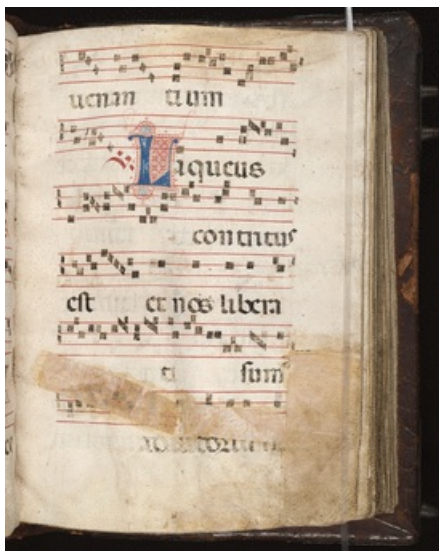 uenan tium
Laqueus
contritus
est et nos libera
ti sumus